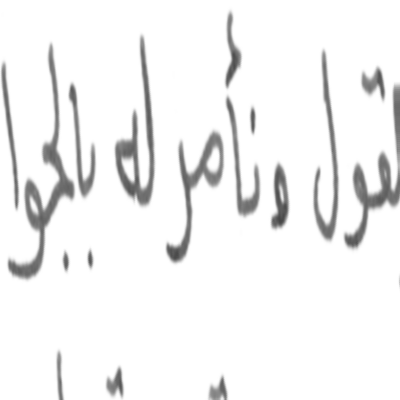 لقول ونأمر له بالجوا